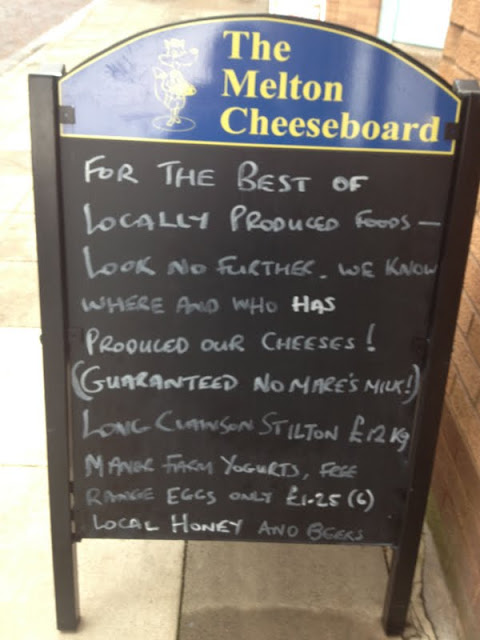 The
Melton
Cheeseboard
FOR THE BEST OF
LOCALLY PRODUCED FOODS —
LOOK NO FURTHER. WE KNOW
WHERE AND WHO HAS
PRODUCED OUR CHEESES!
(GUARANTEED NO MARE'S MILK!)
LONG CLAWSON STILTON £12 Kg
MANOR FARM YOGURTS, FREE
RANGE EGGS ONLY £1.25 (6)
LOCAL HONEY AND BEERS